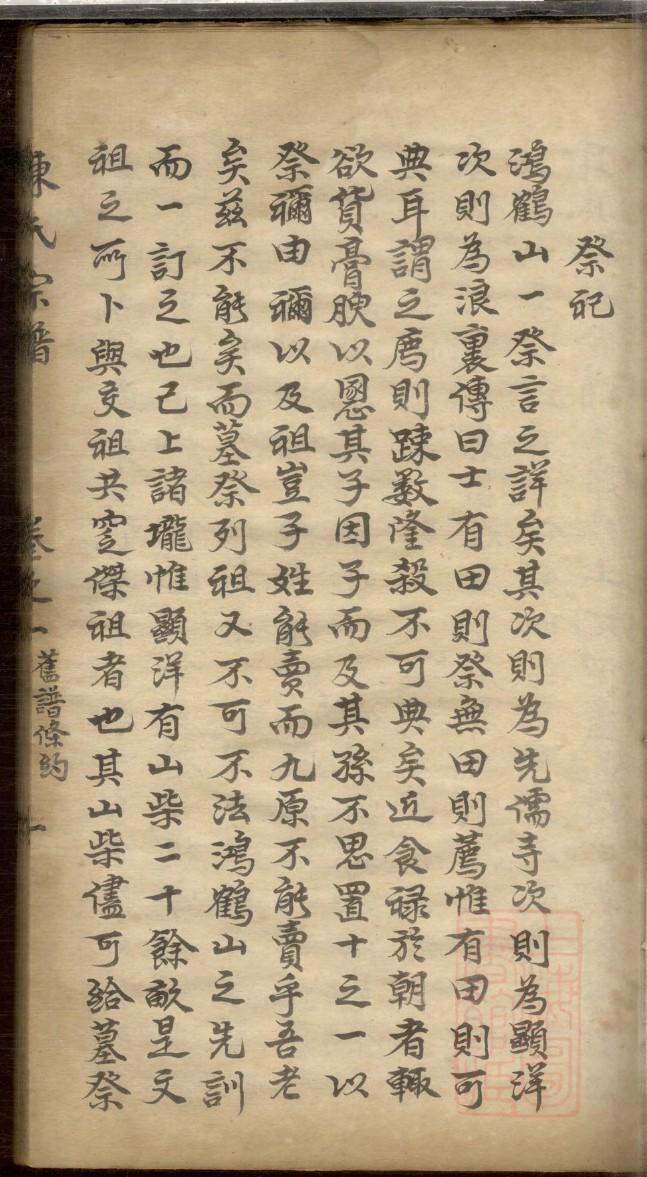 祭祀
鴻鶴山一祭言之詳矣其次則為先儒寺次則為顯洋
次則為浪裏傳曰士有田則祭無田則薦惟有田則可
典耳謂之廌則踈數隆殺不可典矣近食祿於朝者輙
欲貨膏腴以恩其子因子而及其孫不思置十之一以
祭禰由禰以及祖豈子姓能賣而九原不能賣乎吾老
矣茲不能矣而墓祭列祖又不可不法鴻鶴山之先訓
而一訂之也已上諸壠惟顯洋有山柴二十餘畝是文
祖之所卜與文祖共窆傑祖者也其山柴儘可給墓祭
陳氏宗譜
卷之一
舊譜條約